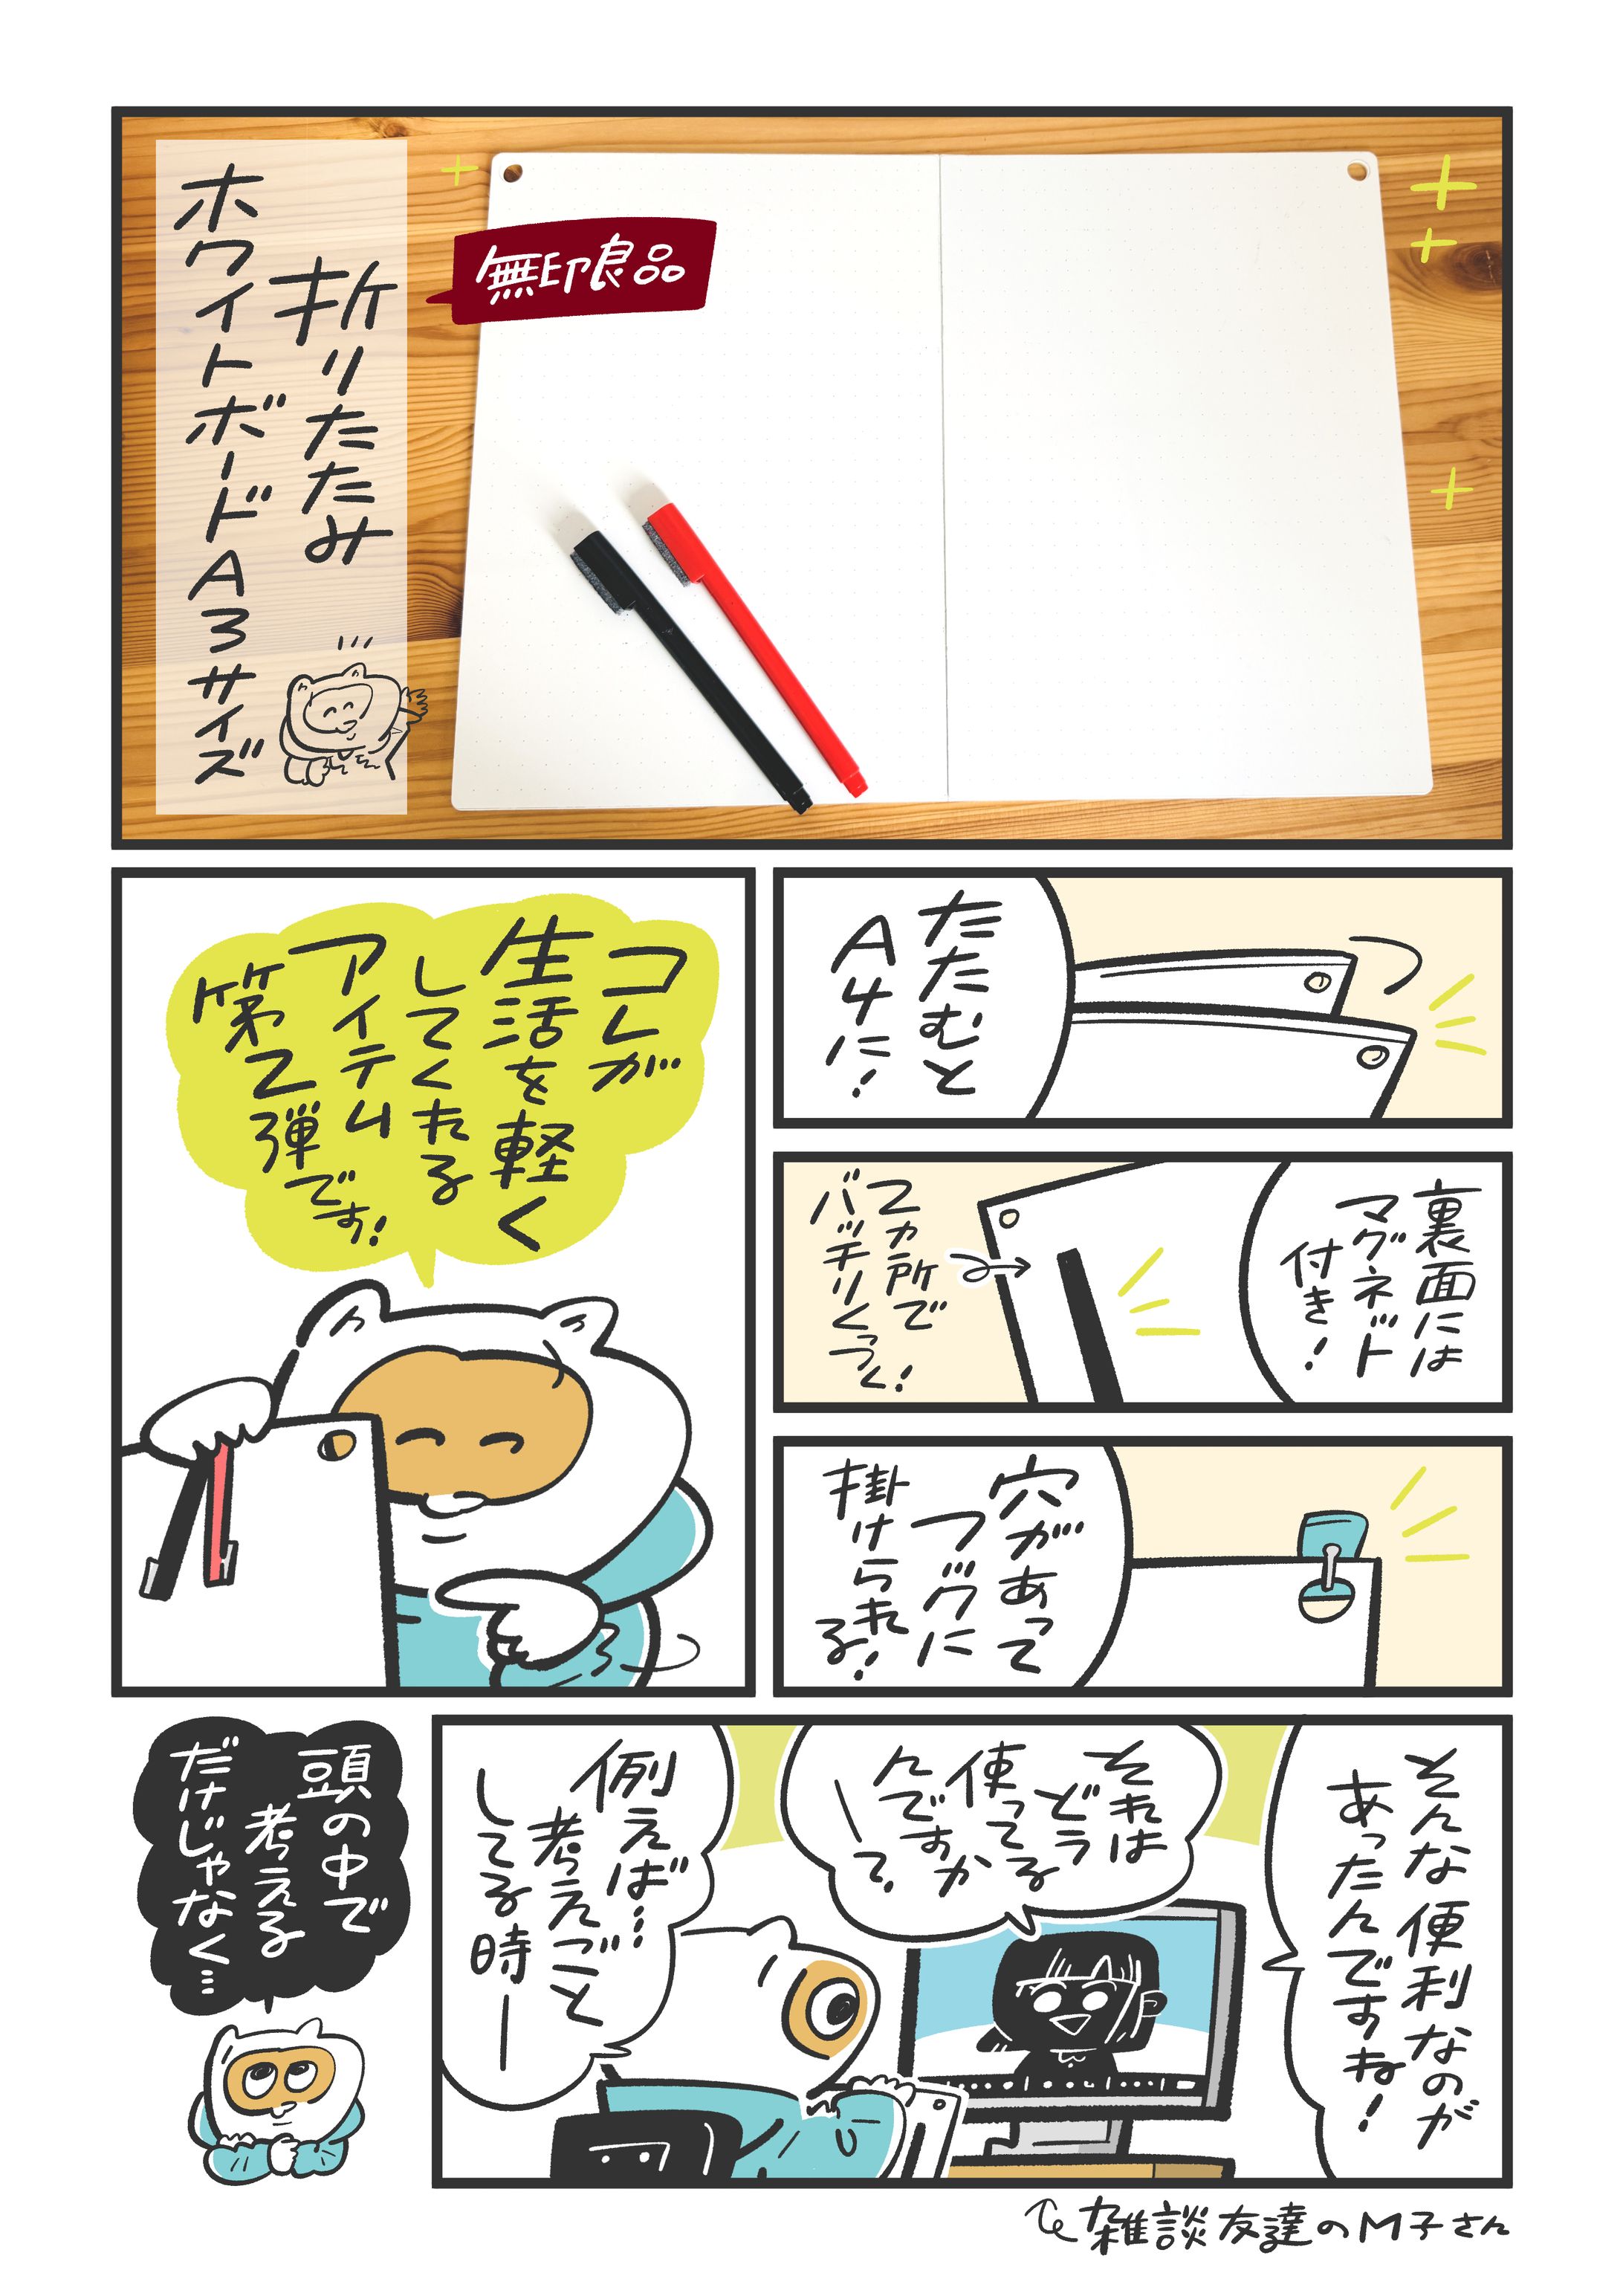 無印良品
折りたたみ
ホワイトボードA3サイズ
たたむと
A4に!
裏面には
マグネット
付き!
2ヵ所で
バッチリくっつく!
穴があって
フックに
掛けられる!
コレが
生活を軽く
してくれる
アイテム
第2弾です!
そんな便利なのが
あったんですね!
それは
どう
使ってる
んですか
ーって。
例えば…
考えごと
してる時ー
雑談友達のM子さん
頭の中で
考える
だけじゃなく…